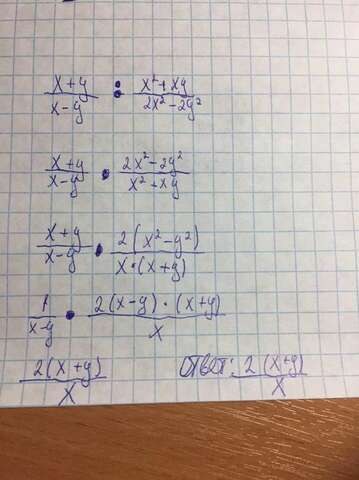 (x+y)/(x-y) : (x²+xy)/(2x²-2y²)
(x+y)/(x-y) • (2x²-2y²)/(x²+xy)
(x+y)/(x-y) • 2(x²-y²)/(x•(x+y))
1/(x-y) • (2(x-y)•(x+y))/x
2(x+y)/x Ответ: 2(x+y)/x